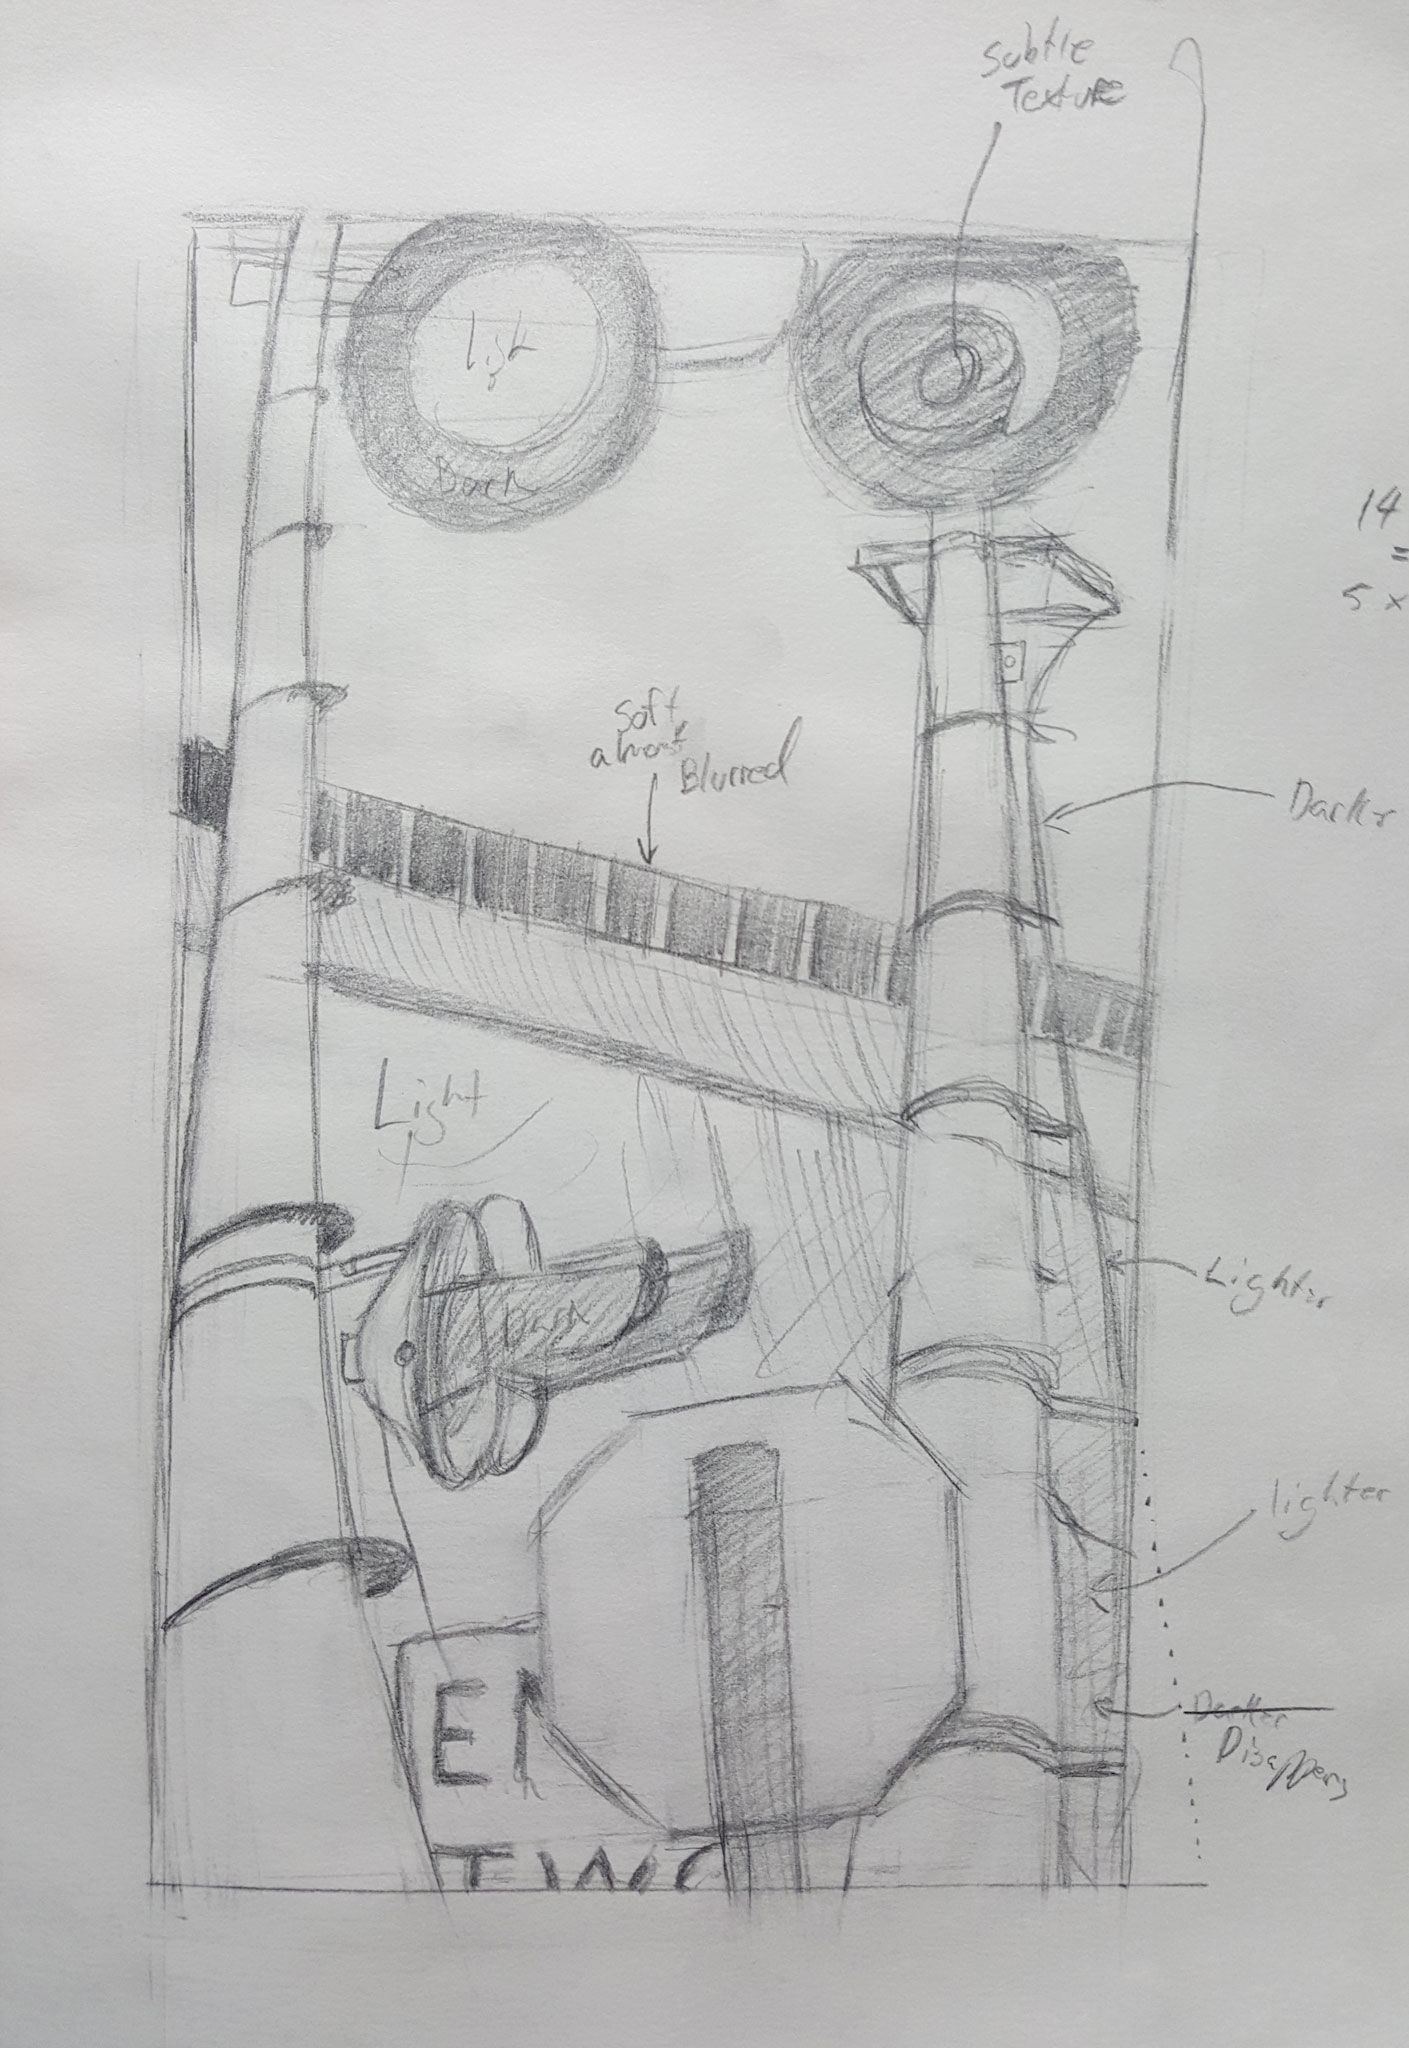 Subtle
Texture
Light
Dark
14
=
5 x
Soft
almost
Blurred
Darkr
Light
Lighter
Dark
lighter
EN
Darker
Disappers
TWO